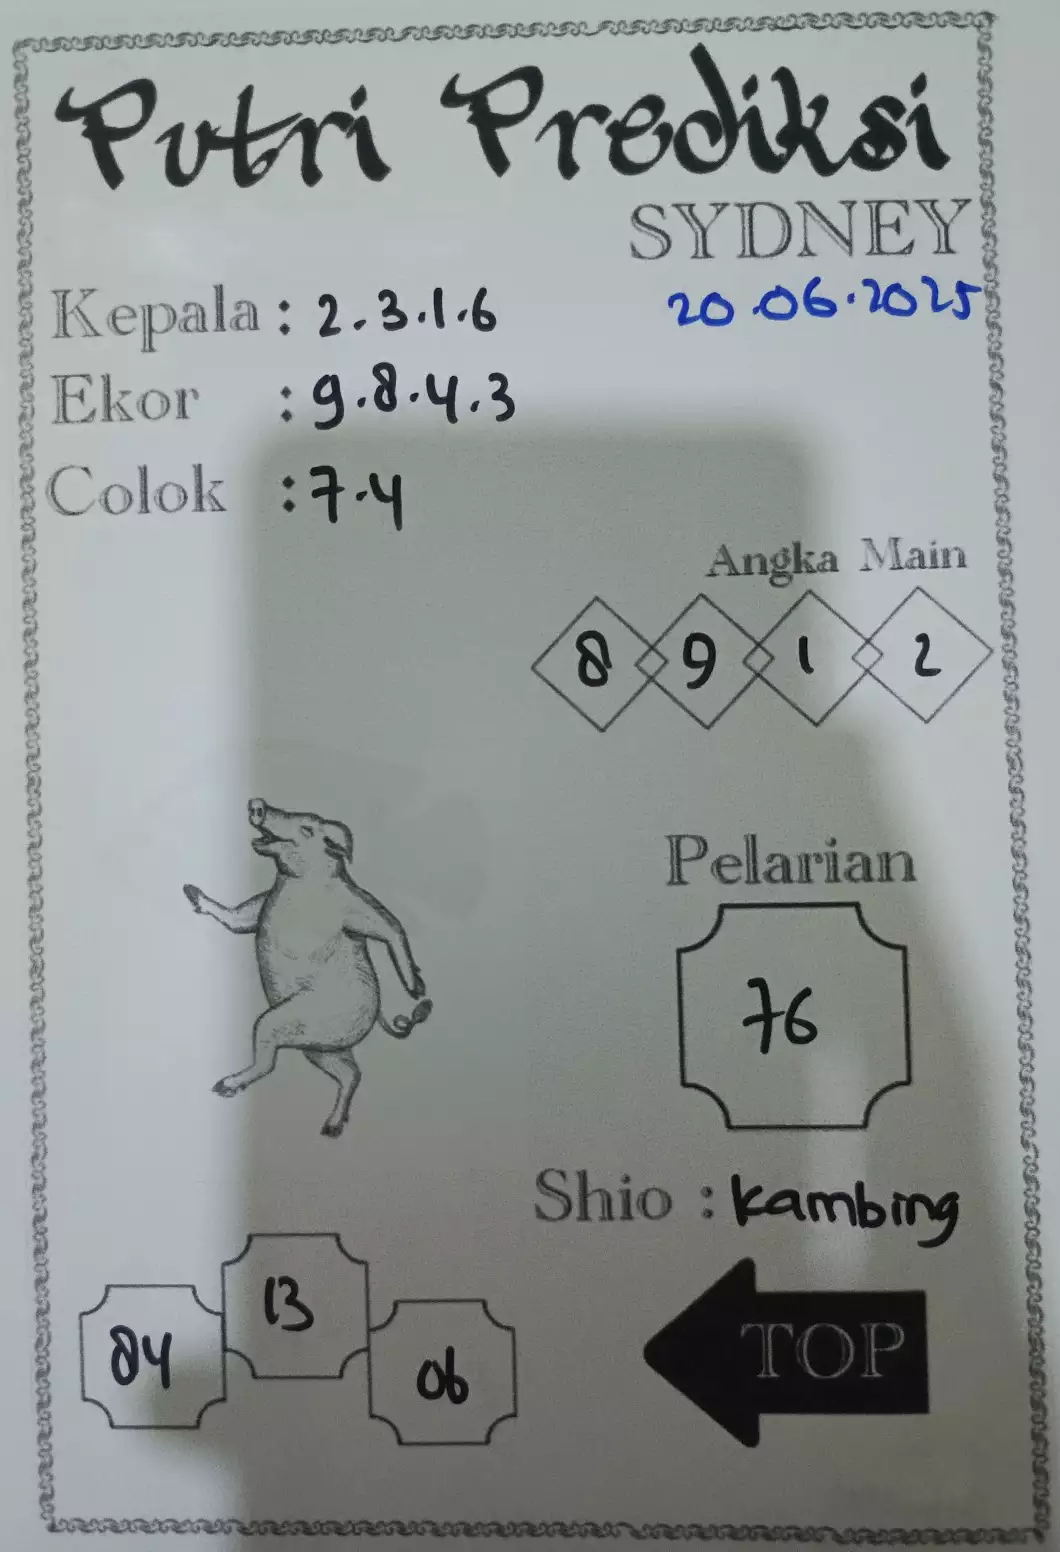 Putri Prediksi
SYDNEY
20.06.2025
Kepala : 2.3.1.6
Ekor : 9.8.4.3
Colok : 7.4
Angka Main
8 9 1 2
Pelarian
76
Shio : Kambing
84 13 06
TOP